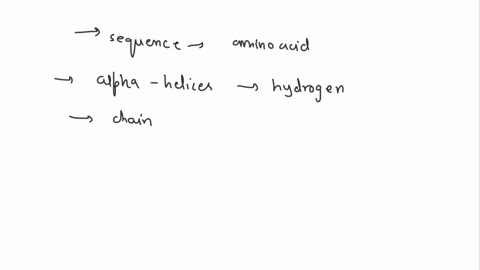 → sequence → amino acid
→ alpha - helices → hydrogen
→ chain